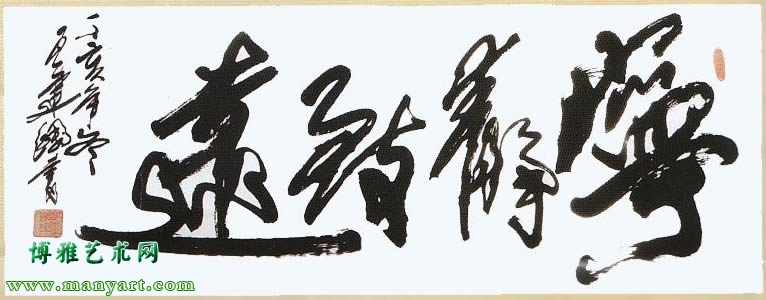 寧靜致遠
丁亥年冬
建國書
博雅艺术网
www.manyart.com